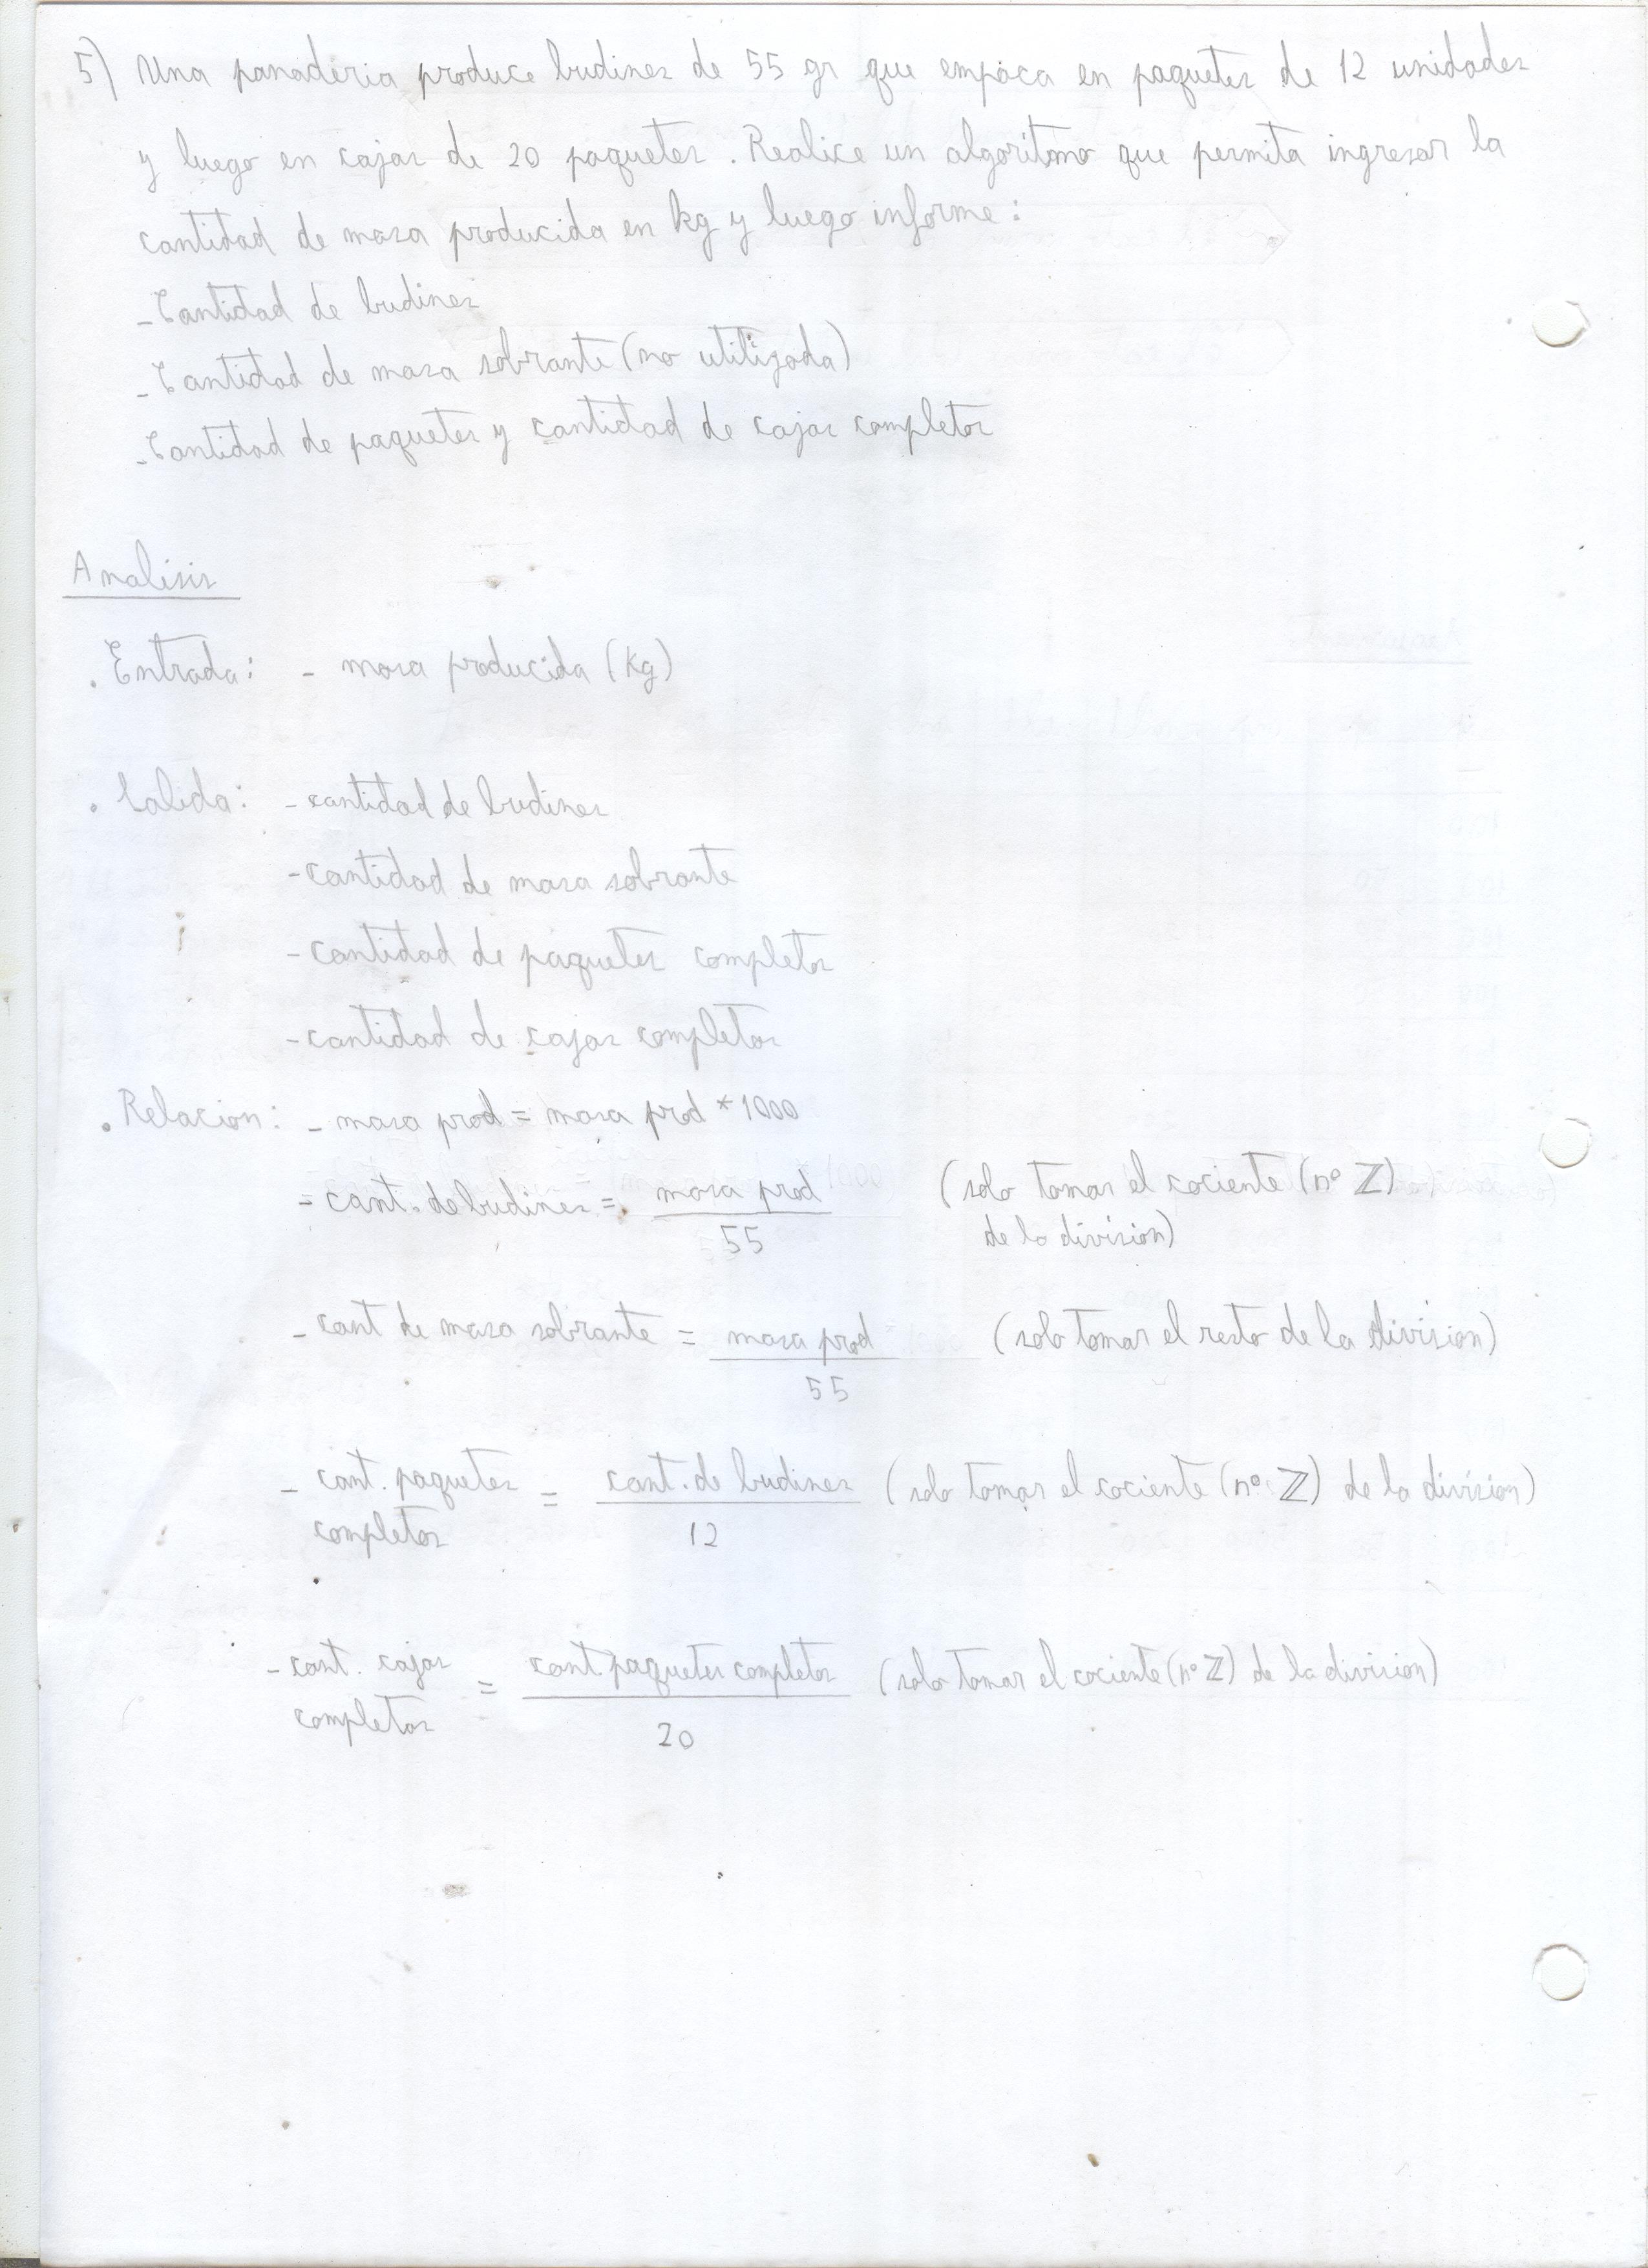 5) Una panaderia produce budines de 55 gr que empaca en paquetes de 12 unidades
y luego en cajas de 20 paquetes. Realice un algoritmo que permita ingresar la
cantidad de masa producida en kg y luego informe:
- Cantidad de budines
- Cantidad de masa sobrante (no utilizada)
- Cantidad de paquetes y cantidad de cajas completos
Analisis
. Entrada: - masa producida (kg)
. Salida: - cantidad de budines
- cantidad de masa sobrante
- cantidad de paquetes completos
- cantidad de cajas completas
. Relacion: - masa prod = masa prod * 1000
- cant. de budines = masa prod (solo tomar el cociente (nº ℤ)
55 de la division)
- cant de masa sobrante = masa prod (solo tomar el resto de la division)
55
- cant. paquetes = cant. de budines (solo tomar el cociente (nº ℤ) de la division)
completos 12
- cant. cajas = cant. paquetes completos (solo tomar el cociente (nº ℤ) de la division)
completas 20